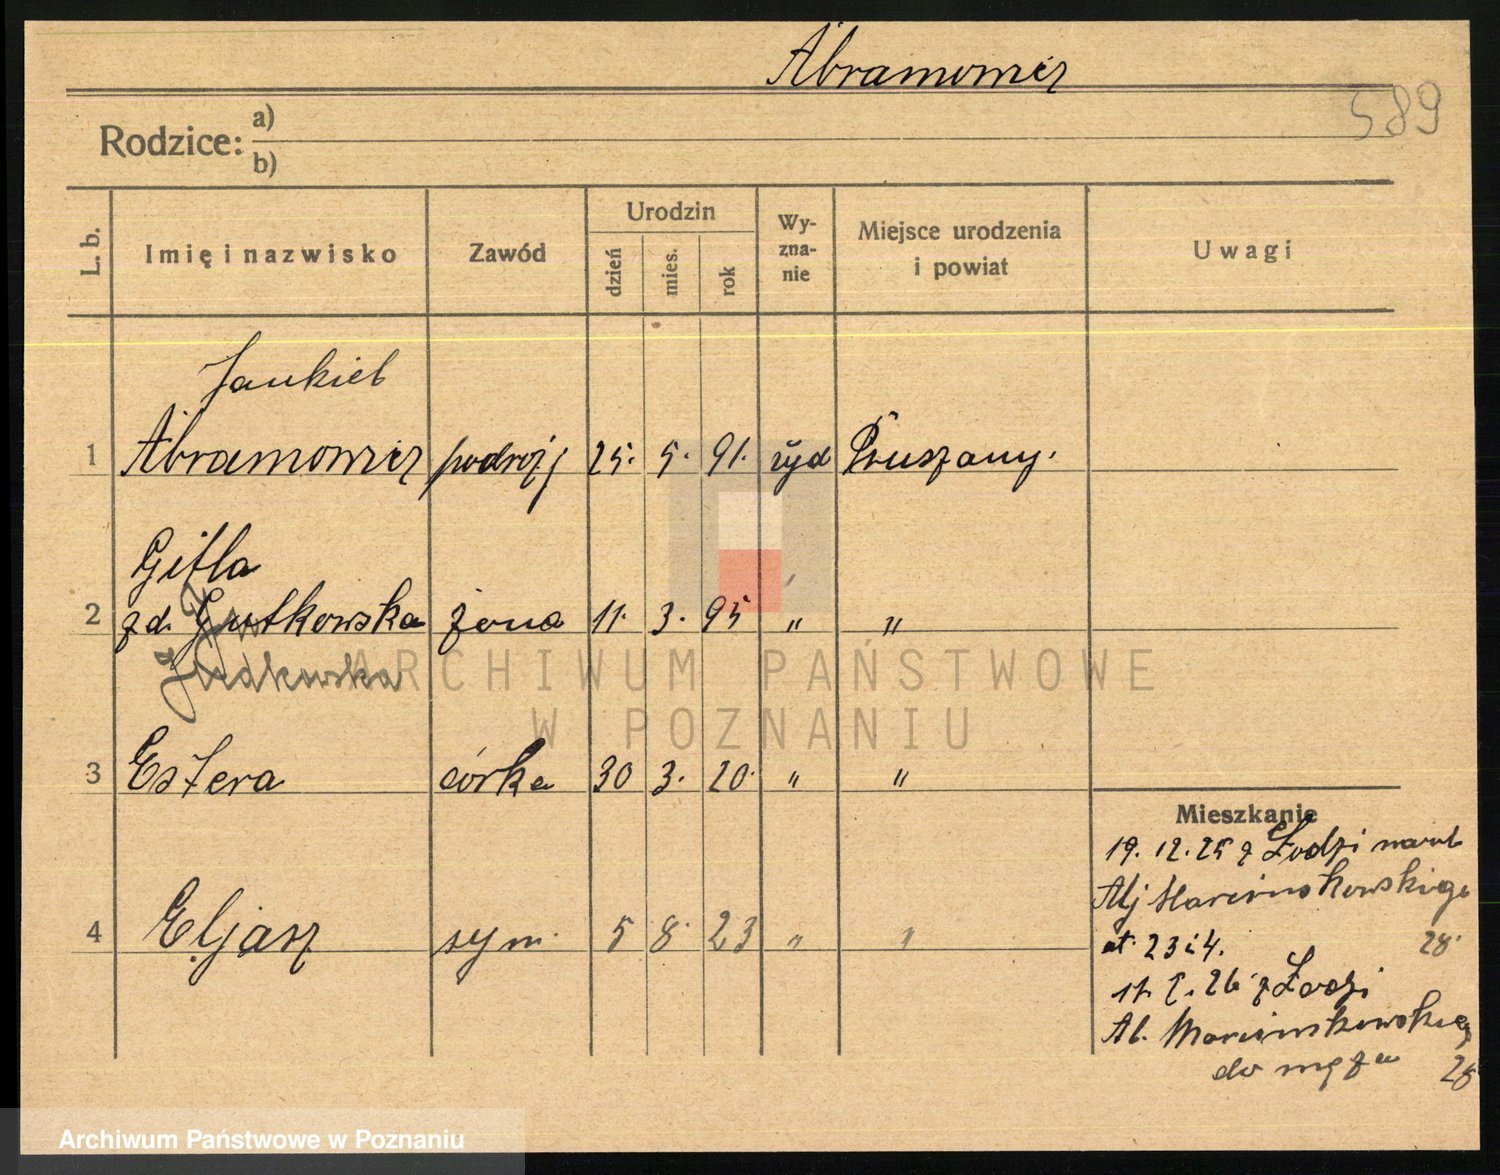 Abramowicz
589
Rodzice: a)
b)
L. b.
Imię i nazwisko
Zawód
Urodzin
dzień
mies.
rok
Wy-
zna-
nie
Miejsce urodzenia
i powiat
Uwagi
Jankiel
1 Abramowicz podróż 25. 5. 91. żyd Pruszany.
Gitla
2 z d. Gutkowska żona 11. 3. 95 " "
Żudkowska
3 Estera córka 30 3. 20. " "
4 Eljasz syn. 5 8. 23 " "
Mieszkanie
19. 12. 25 z Łodzi
Alj Marcinkowskiego
28.
26 z Łodzi
Al. Marcinkowskieg
do męża 28
ARCHIWUM PAŃSTWOWE
W POZNANIU
Archiwum Państwowe w Poznaniu